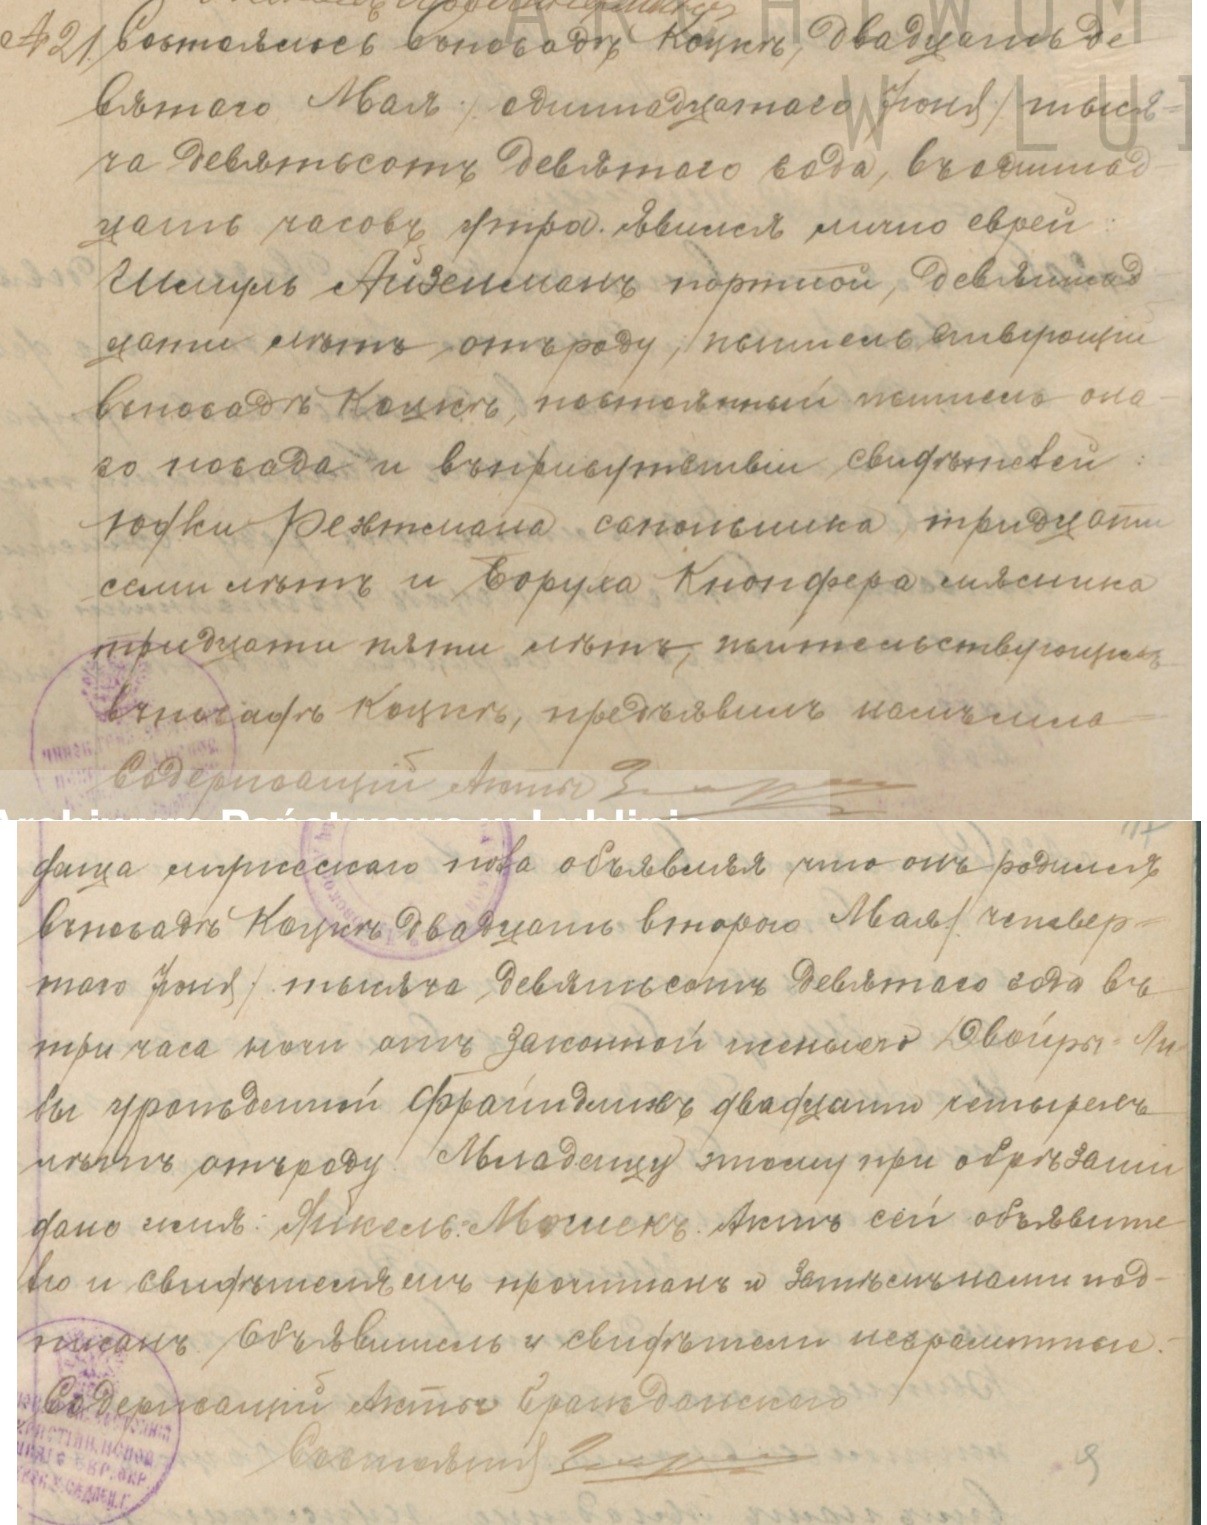 № 21. Состоялось въ посадѣ Коцкѣ, Двадцать де
вятаго Мая /одиннадцатаго Іюня/ тыся-
ча девятьсотъ девятаго года, въ одиннад
цать часовъ утра. Явился лично еврей:
Шмуль Айзенманъ портной, девятнад
цати лѣтъ отъ роду, жительствующій
въ посадѣ Коцкѣ, постоянный житель она-
го посада и въ присутствіи свидѣтелей:
Юдки сапожника, тридцати
семи лѣтъ и Боруха Кнопфера мясника
тридцати пяти лѣтъ, жительствующихъ
въ посадѣ Коцкѣ, предъявилъ намъ мла-
Содержащій Акты
денца мужескаго пола объявляя что онъ родился
въ посадѣ Коцкѣ двадцать второго Мая /четвер-
таго Іюня/ тысяча девятьсотъ девятаго года въ
три часа ночи отъ законной жены его Двойры-Ли
бы урожденной двадцати четырехъ
лѣтъ отъ роду. Младенцу этому при обрѣзаніи
дано имя: Янкель-Мошекъ. Актъ сей объявите
лю и свидѣтелямъ прочитанъ и затѣмъ нами под-
писанъ. Объявитель и свидѣтели неграмотные.
Содержащій Акты Гражданскаго
Состоянія
Archiwum Państwowe w Lublinie